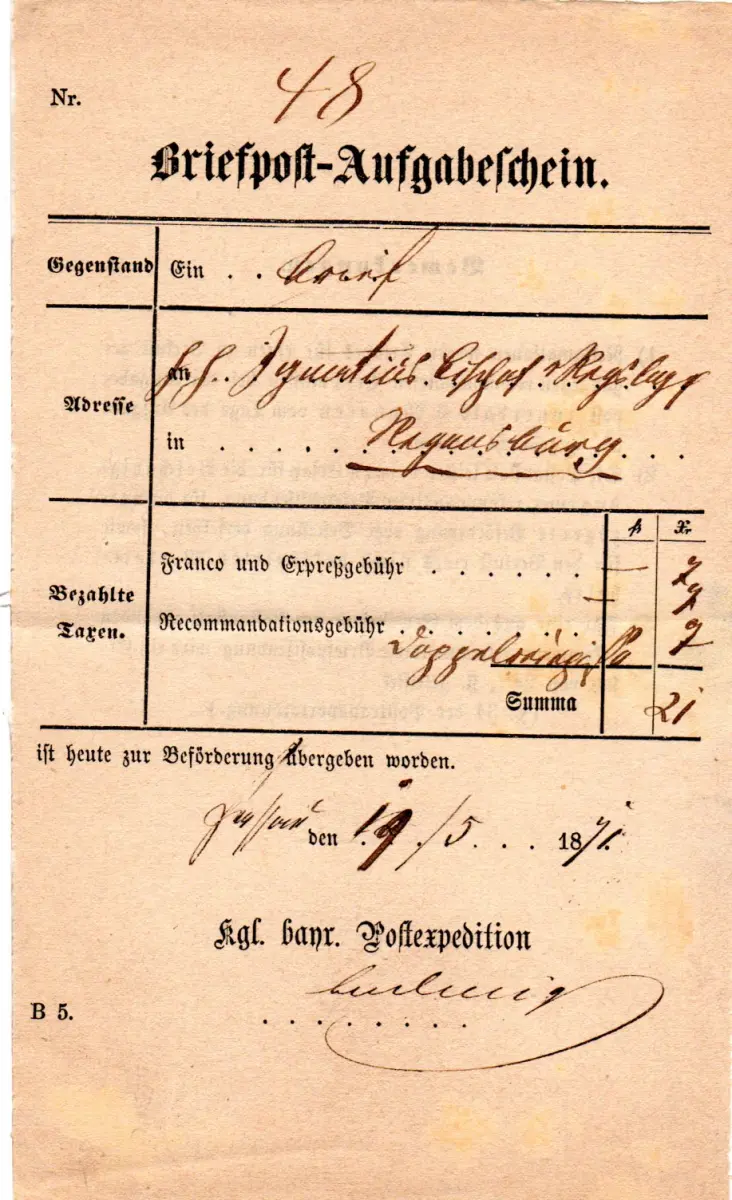 Nr. 48
Briefpost-Aufgabeschein.
Gegenstand Ein . . brief
Adresse
an H. H. Ignatius Bischof v Regsbug
in . . . . . . Regensburg . . .
fl Xr.
Bezahlte Taxen.
Franco und Expreßgebühr . . . . . . — 7
7
Recommandationsgebühr . . . . . . 7
Summa 21
ist heute zur Beförderung übergeben worden.
Passau den 19./5. . . 1871.
Kgl. bayr. Postexpedition
Ludwig
B 5. . . . . . . . .